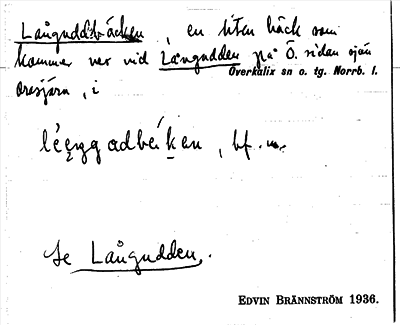 Långuddbäcken, en liten bäck som
kommer ner vid Långudden på Ö. sidan sjön
Överkalix sn o. tg. Norrb. l.
i
bf. m.
Se Långudden.
EDVIN BRÄNNSTRÖM 1936.